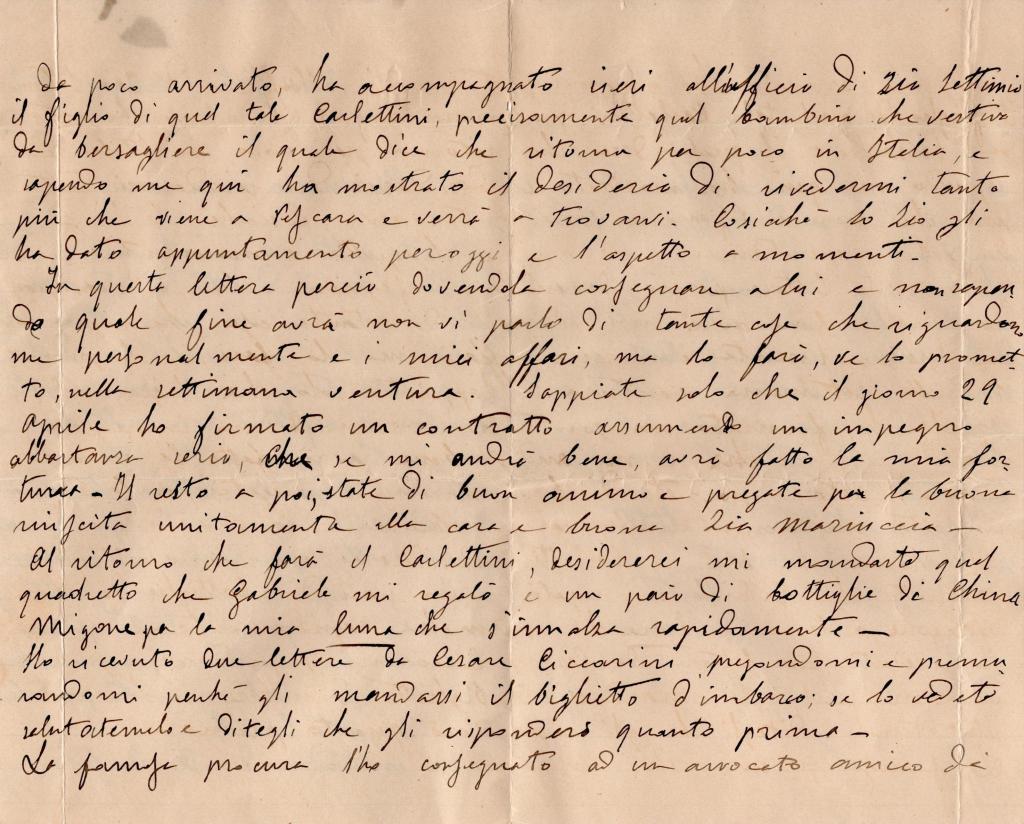 da poco arrivato, ha accompagnato ieri all'ufficio di Zio Settimio
il figlio di quel tale Carlettini, precisamente quel bambino che vestiva
da bersagliere il quale dice che ritorna per poco in Italia, e
sapendo me qui ha mostrato il desiderio di rivedermi tanto
più che viene a Pescara e verrà a trovarvi. Cosichè lo Zio gli
ha dato appuntamento per oggi e l'aspetto a momenti.
In questa lettera perciò dovendola consegnare a lui e non sapen-
do quale fine avrà non vi parlo di tante cose che riguardano
me personalmente e i miei affari, ma lo farò, ve lo promet-
to, nella settimana ventura. Sappiate solo che il giorno 29
Aprile ho firmato un contratto assumendo un impegno
abbastanza serio, che se mi andrà bene, avrò fatto la mia for-
tuna - Il resto a poi, state di buon animo e pregate per la buona
riuscita unitamente alla cara e buona Zia Mariuccia -
Al ritorno che farà il Carlettini, desidererei mi mandaste quel
quadretto che Gabriele mi regalò e un paio di bottiglie di China
Migone per la mia luna che s'innalza rapidamente -
Ho ricevuto due lettere da Cesare Ciccarini pregandomi e premu
randomi perché gli mandassi il biglietto d'imbarco; se lo vedete
salutatemelo e ditegli che gli risponderò quanto prima -
La famosa procura l'ho consegnato ad un avvocato amico di